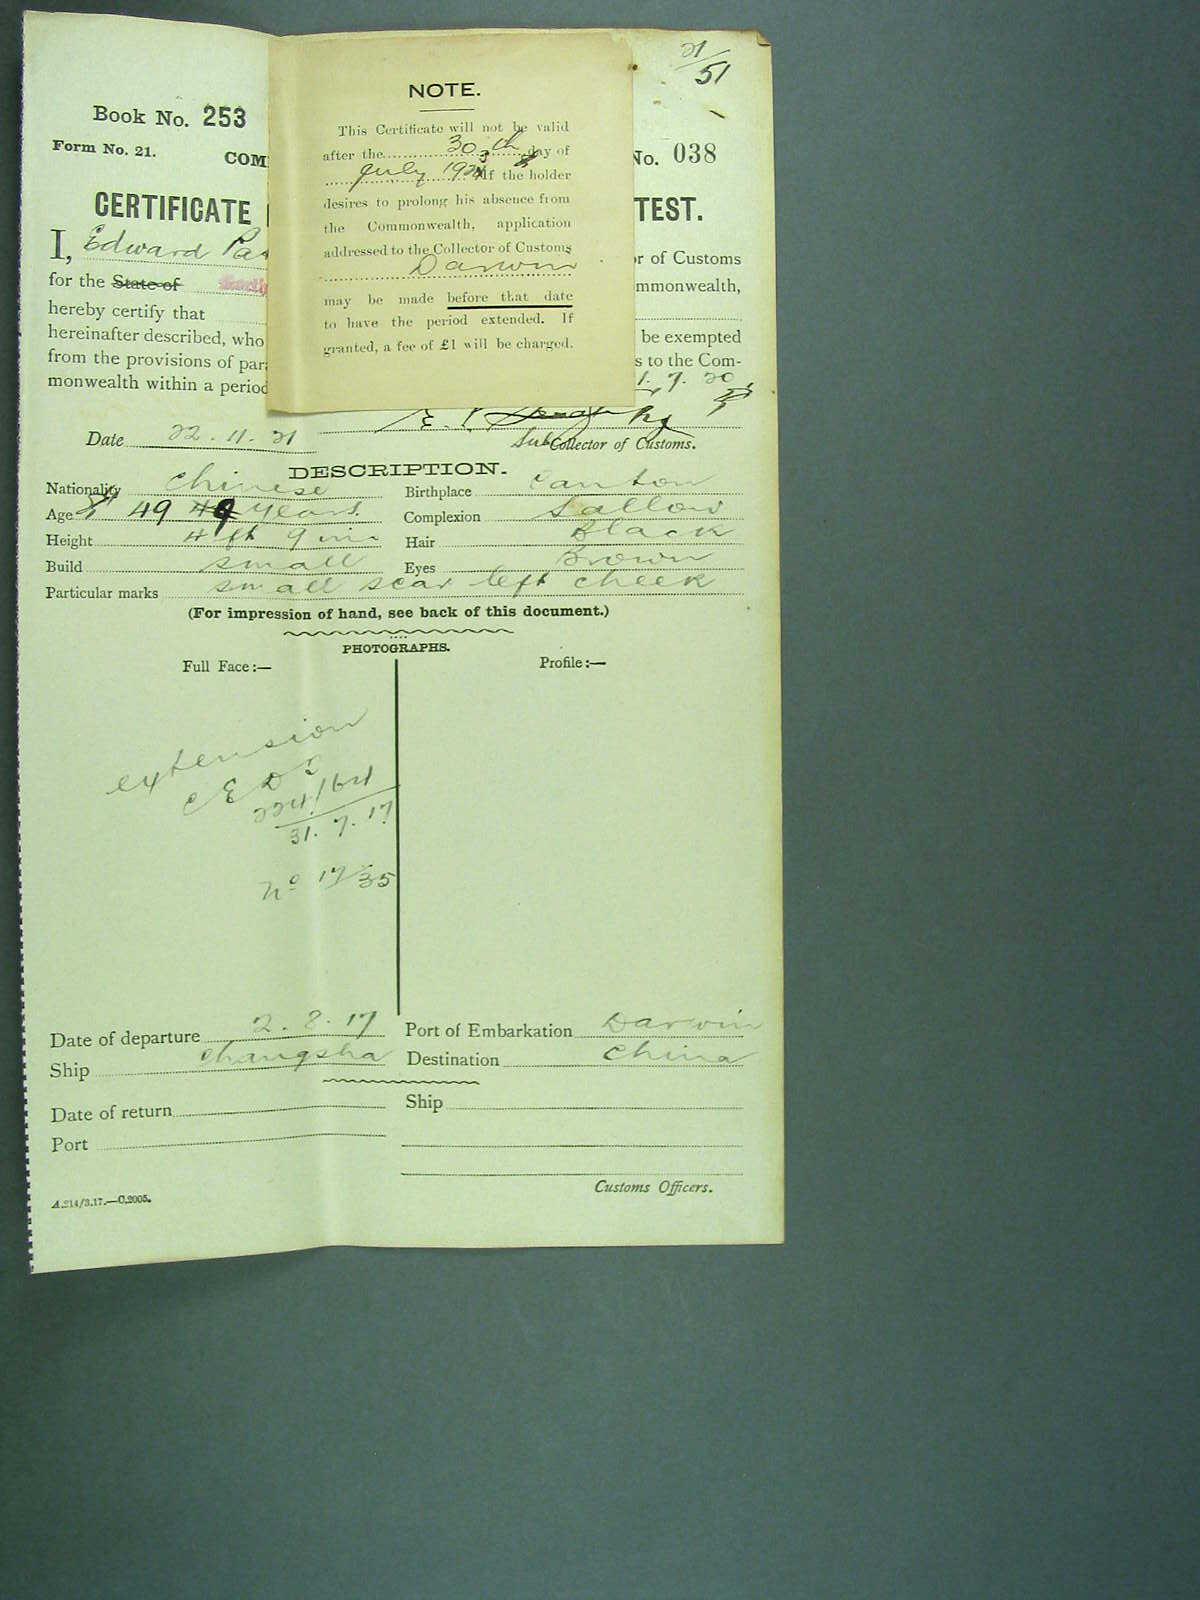 21/51
Book No. 253
Form No. 21.
COM
No. 038
CERTIFICATE
TEST.
I, Edward Pa
r of Customs
for the State of
mmonwealth,
hereby certify that
hereinafter described, who
be exempted
from the provisions of par
s to the Com-
monwealth within a period
NOTE.
This Certificate will not be valid
after the 30th day of
July 192 If the holder
desires to prolong his absence from
the Commonwealth, application
addressed to the Collector of Customs
Darwin
may be made before that date
to have the period extended. If
granted, a fee of £1 will be charged.
Date 22.11.21
Sub Collector of Customs.
DESCRIPTION.
Nationality Chinese
Birthplace Canton
Age 49 years
Complexion Sallow
Height 4 ft 9 in
Hair Black
Build small
Eyes Brown
Particular marks small scar left cheek
(For impression of hand, see back of this document.)
PHOTOGRAPHS.
Full Face:—
Profile:—
extension
C E D T
224/164
31.7.17
No 17/35
Date of departure 2.8.17
Port of Embarkation Darwin
Ship Changsha
Destination China
Date of return
Ship
Port
Customs Officers.
A.214/3.17.—C.2005.